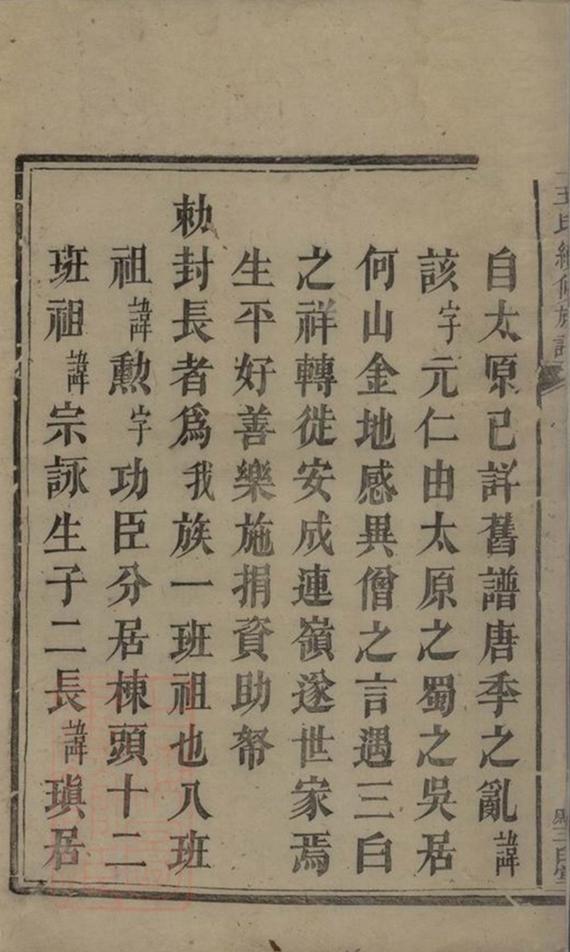 自太原已詳舊譜唐季之亂諱
該字元仁由太原之蜀之吳居
何山金地感異僧之言遇三白
之祥轉徙安成連嶺遂世家焉
生平好善樂施捐資助帑
勅封長者為我族一班祖也八班
祖諱勲字功臣分居棟頭十二
班祖諱宗詠生子二長諱瑱居